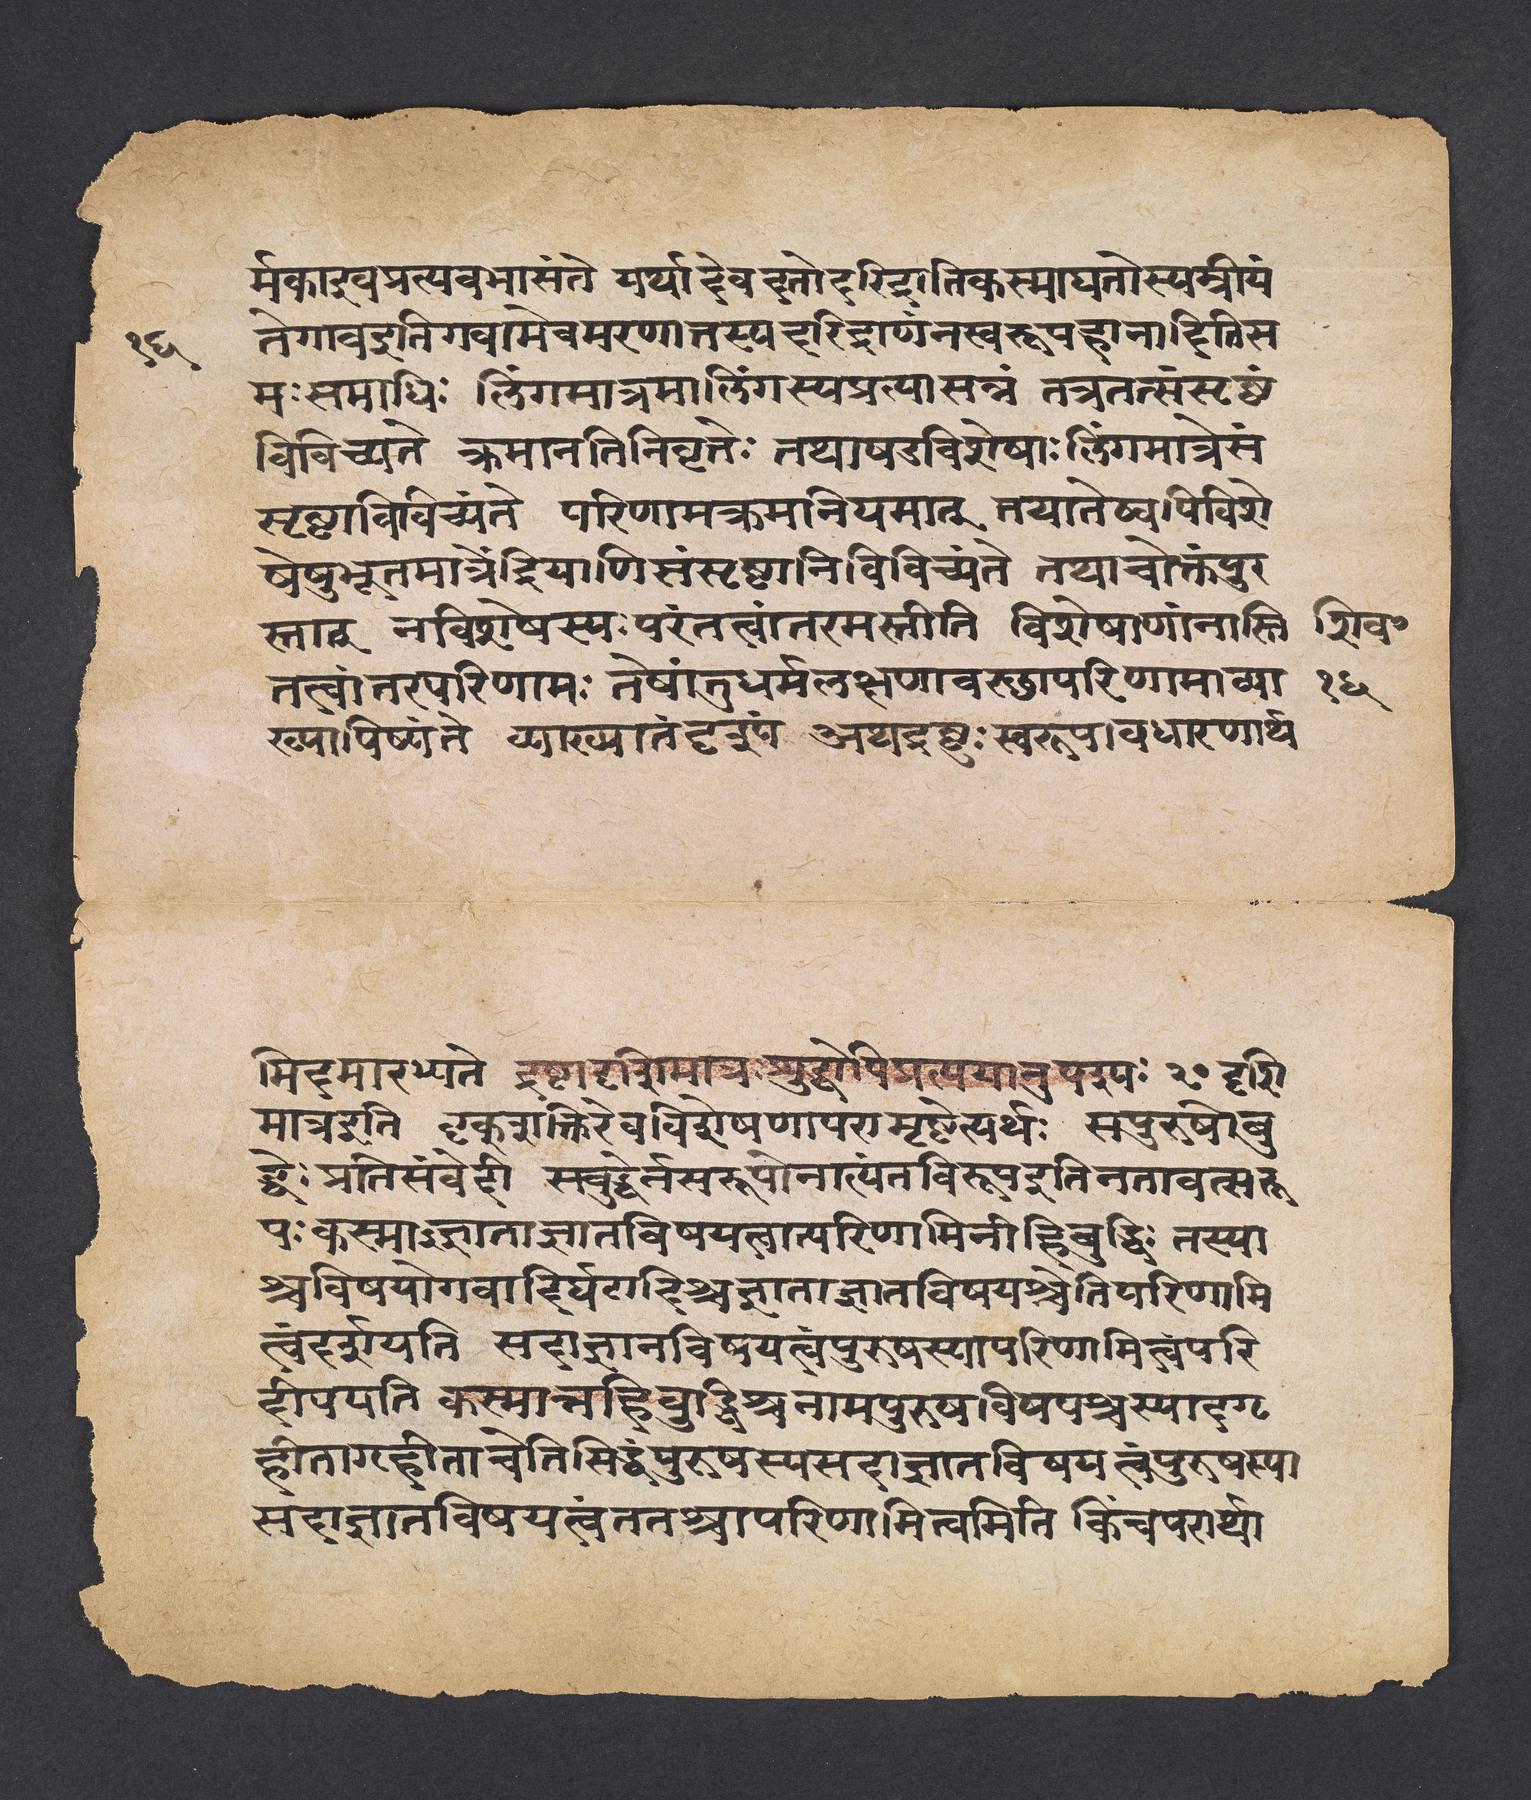 र्मकाइवप्रत्यवभासंते यथादेवदत्तोदरिद्रातिकस्माद्यतोस्यम्रीयं
१६
तेगावइतिगवामेवमरणात्तस्यदरिद्राणंनस्वरूपहानादितिस
मःसमाधिः लिंगमात्रमालिंगस्यप्रत्यासन्नं तत्रतत्संसृष्टं
विविच्यते क्रमानतिनिवृतेः तथाषडविशेषाःलिंगमात्रेसं
सृष्टाविविच्यंते परिणामक्रमानियमात् तयातेष्वपिविशे
षेषुभूतमात्रेंद्रियाणिसंसृष्टानिविविच्यंते तथाचोक्तंपुर
स्तात् नविशेषस्यःपरंतत्वांतरमस्तीति विशेषाणांनास्ति
शिव॰
तत्वांतरपरिणामः तेषांतुधर्मलक्षणावस्थापरिणामाव्या
१६
ख्यापिष्यंते व्याख्यातंदृश्यं अथद्रष्टुःस्वरूपावधारणार्थ
मिदमारभ्यते द्रष्टादृशिमात्रःशुद्धोपिप्रत्ययानुपश्यः २० दृशि
मात्रइति दृक्शक्तिरेवविशेषणापरामृष्टेत्यर्थः सपुरुषोबु
द्धेःप्रतिसंवेदी सबुद्धेर्नसरूपोनात्यंतविरूपइतिनतावत्सरू
पः कस्माज्ज्ञाताज्ञातविषयत्वात्परिणामिनीहिबुद्धिः तस्या
श्चविषयोगवादिर्घटादिश्चज्ञाताज्ञातविषयश्चेतिपरिणामि
त्वंदर्शयति सदाज्ञानविषयत्वंपुरुषस्यापरिणामित्वंपरि
दीपयति कस्मान्नहिबुद्धिश्चनामपुरुषविषयश्चस्यादगृ
हीतागृहीताचेतिसिद्धंपुरुषस्यसदाज्ञातविषयत्वंपुरुषस्या
सदाज्ञातविषयत्वंततश्चापरिणामित्वमिति किंचपरार्था